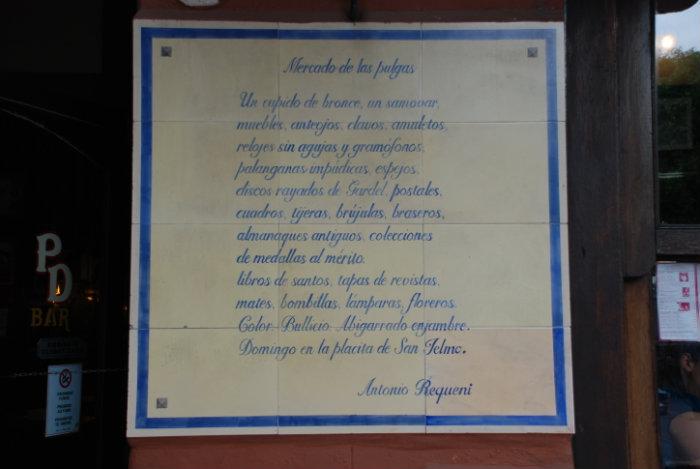 Mercado de las pulgas
Un cupido de bronce, un samovar,
muebles, anteojos, clavos, amuletos,
relojes sin agujas y gramófonos,
palanganas impúdicas, espejos,
discos rayados de Gardel, postales,
cuadros, tijeras, brújulas, braseros,
almanaques antiguos, colecciones
de medallas al mérito,
libros de santos, tapas de revistas,
mates, bombillas, lámparas, floreros.
Color. Bullicio. Abigarrado enjambre.
Domingo en la placita de San Telmo.
Antonio Requeni
PD
BAR